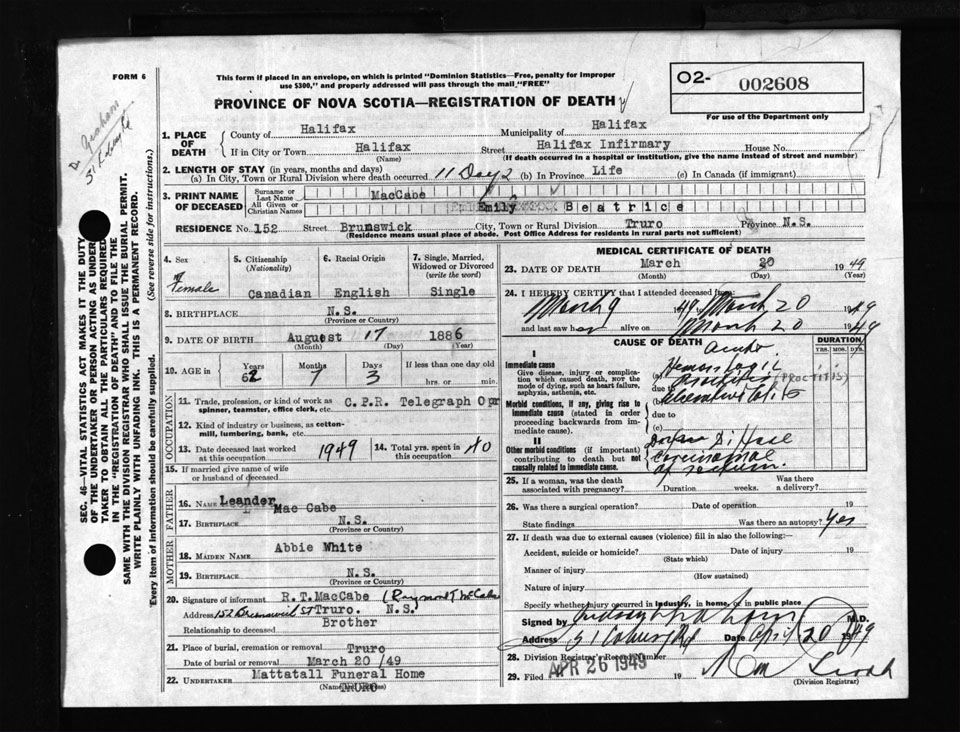 FORM 6
This form if placed in an envelope, on which is printed "Dominion Statistics—Free, penalty for improper
use $300," and properly addressed will pass through the mail "FREE"
PROVINCE OF NOVA SCOTIA—REGISTRATION OF DEATH
O2- 002608
For use of the Department only
SEC. 46—VITAL STATISTICS ACT MAKES IT THE DUTY
OF THE UNDERTAKER OR PERSON ACTING AS UNDER-
TAKER TO OBTAIN ALL THE PARTICULARS REQUIRED
IN THE "REGISTRATION OF DEATH" AND TO FILE THE
SAME WITH THE DIVISION REGISTRAR WHO SHALL ISSUE THE BURIAL PERMIT.
WRITE PLAINLY WITH UNFADING INK. THIS IS A PERMANENT RECORD.
Every item of Information should be carefully supplied. (See reverse side for instructions.)
1. PLACE OF DEATH
County of Halifax Municipality of Halifax
If in City or Town Halifax Street Halifax Infirmary House No.
(Name) (If death occurred in a hospital or institution, give the name instead of street and number)
2. LENGTH OF STAY (in years, months and days)
(a) In City, Town or Rural Division where death occurred 11 Days (b) In Province Life (c) In Canada (if immigrant)
3. PRINT NAME OF DECEASED
Surname or Last Name MacCabe
All Given or Christian Names Emily Beatrice
RESIDENCE No. 152 Street Brunswick City, Town or Rural Division Truro Province N.S.
(Residence means usual place of abode. Post Office Address for residents in rural parts not sufficient)
4. Sex Female
5. Citizenship (Nationality) Canadian
6. Racial Origin English
7. Single, Married, Widowed or Divorced (write the word) Single
8. BIRTHPLACE N.S.
(Province or Country)
9. DATE OF BIRTH August 17 1886
(Month) (Day) (Year)
10. AGE in Years 62 Months 7 Days 3 If less than one day old
hrs. or min.
OCCUPATION
11. Trade, profession, or kind of work as spinner, teamster, office clerk, etc. C.P.R. Telegraph Opr
12. Kind of industry or business, as cotton-mill, lumbering, bank, etc.
13. Date deceased last worked at this occupation 1949
14. Total yrs. spent in this occupation 40
15. If married give name of wife or husband of deceased
FATHER
16. Name Leander Mac Cabe
17. BIRTHPLACE N.S.
(Province or Country)
MOTHER
18. MAIDEN NAME Abbie White
19. BIRTHPLACE N.S.
(Province or Country)
20. Signature of informant R.T.MacCabe (Raymond T McCabe
Address 152 Brunswick St Truro. N.S.
Relationship to deceased Brother
21. Place of burial, cremation or removal Truro
Date of burial or removal March 20/49
22. UNDERTAKER Mattatall Funeral Home
(Name and address) TRURO
MEDICAL CERTIFICATE OF DEATH
23. DATE OF DEATH March 20 1949
(Month) (Day) (Year)
24. I HEREBY CERTIFY that I attended deceased from:
March 9 1949 March 20 1949
and last saw her alive on March 20 1949
CAUSE OF DEATH
DURATION
YRS. MOS. DYS.
I
Immediate cause
Give disease, injury or complication which caused death, NOT the mode of dying, such as heart failure, asphyxia, asthenia, etc.
(a) Acute Hemorrhagic
Proctitis (PROCTITIS)
due to
Ulcerative Colitis
Morbid conditions, if any, giving rise to immediate cause (stated in order proceeding backwards from immediate cause).
(b)
due to
(c)
II
Other morbid conditions (if important) contributing to death but not causally related to immediate cause.
Carcinoma
of rectum.
25. If a woman, was the death associated with pregnancy? Duration weeks. Was there a delivery?
26. Was there a surgical operation? Date of operation 19
State findings Was there an autopsy? Yes
27. If death was due to external causes (violence) fill in also the following:
Accident, suicide or homicide? Date of injury 19
(State which)
Manner of injury
(How sustained)
Nature of injury
Specify whether injury occurred in industry, in home, or in public place
Signed by M.D.
Address Date April 20 1949
28. Division Registrar's Record Number
29. Filed APR 26 1949 19
(Division Registrar)